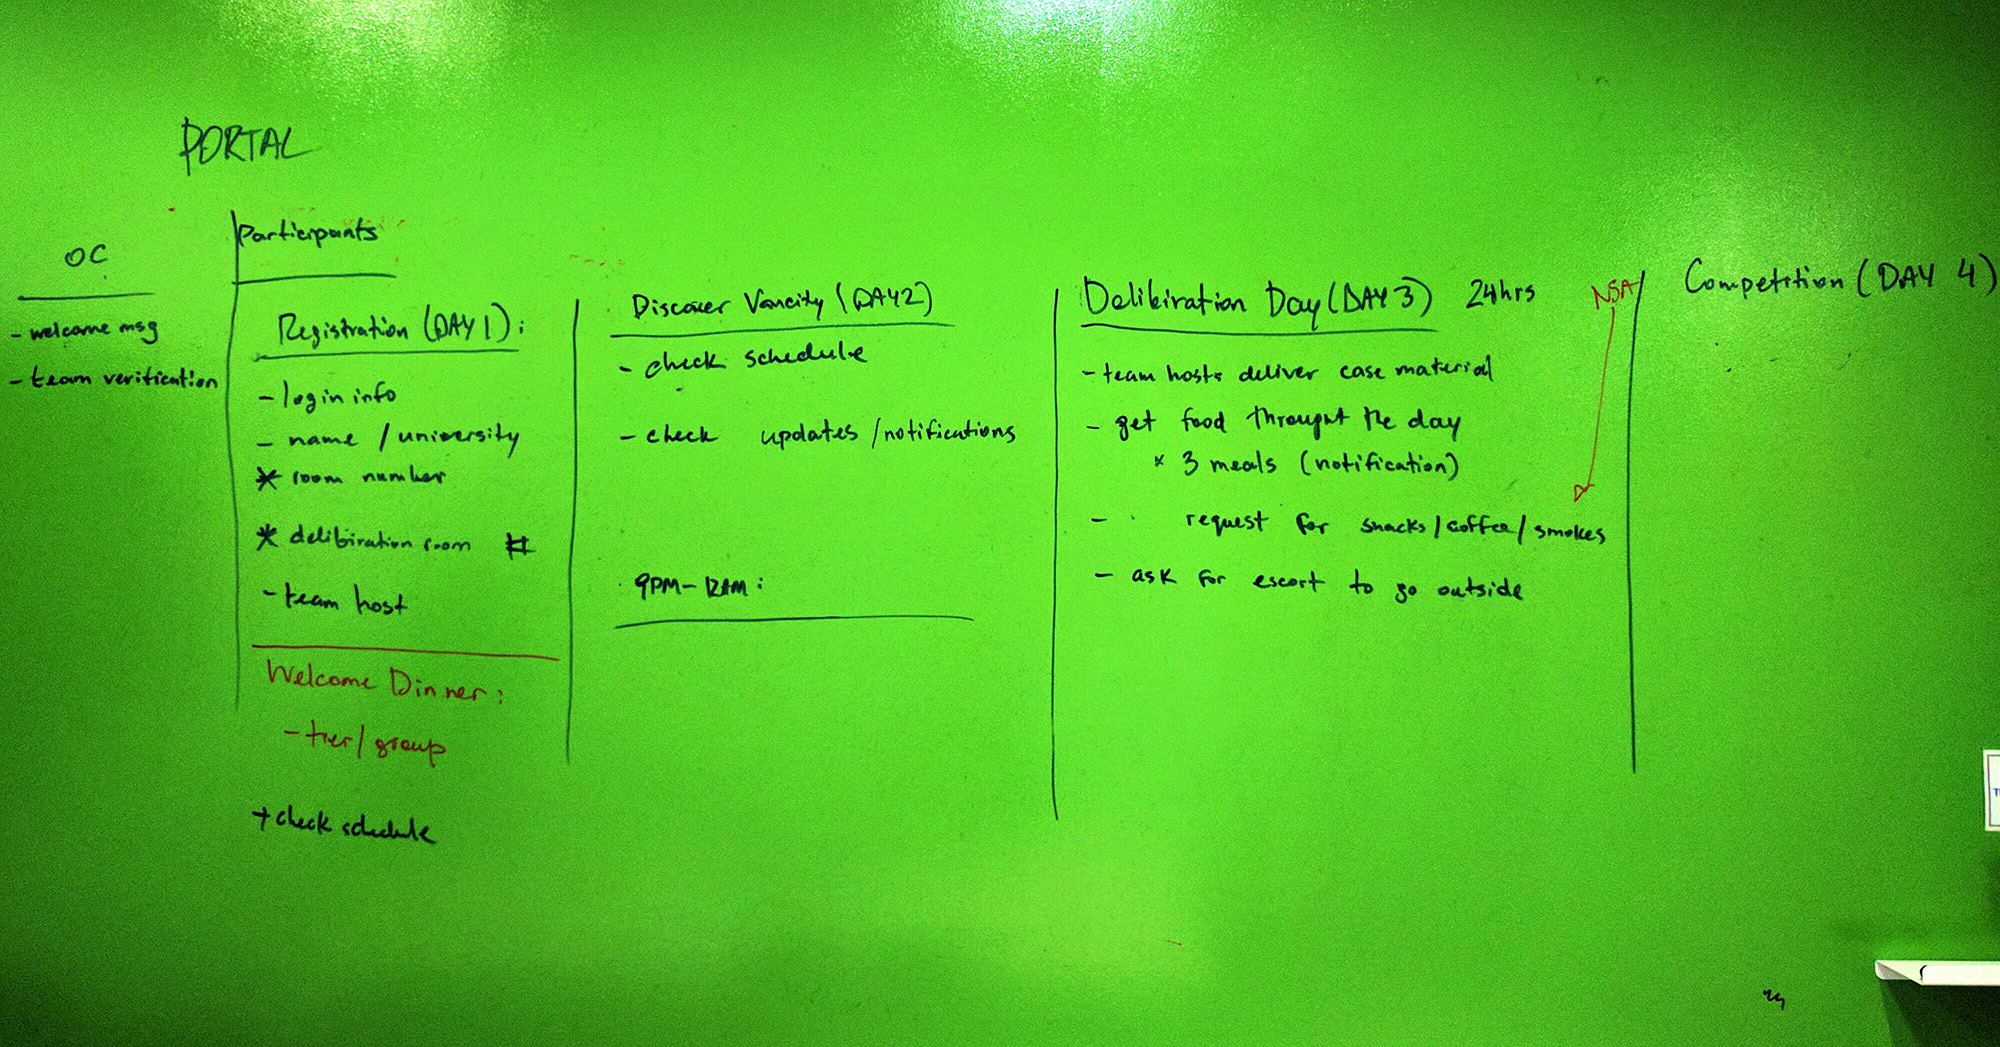 PORTAL
OC
- welcome msg
- team verification
Participants
Registration (DAY 1):
- login info
- name / university
* room number
* delibiration room #
- team host
Welcome Dinner:
- tier / group
+ check schedule
Discover Vancity (DAY 2)
- check schedule
- check updates / notifications
9PM - 12AM:
Delibiration Day (DAY 3) 24hrs
- team hosts deliver case material
- get food throught the day
* 3 meals (notification)
- request for snacks / coffee / smokes
- ask for escort to go outside
NSA
Competition (DAY 4)